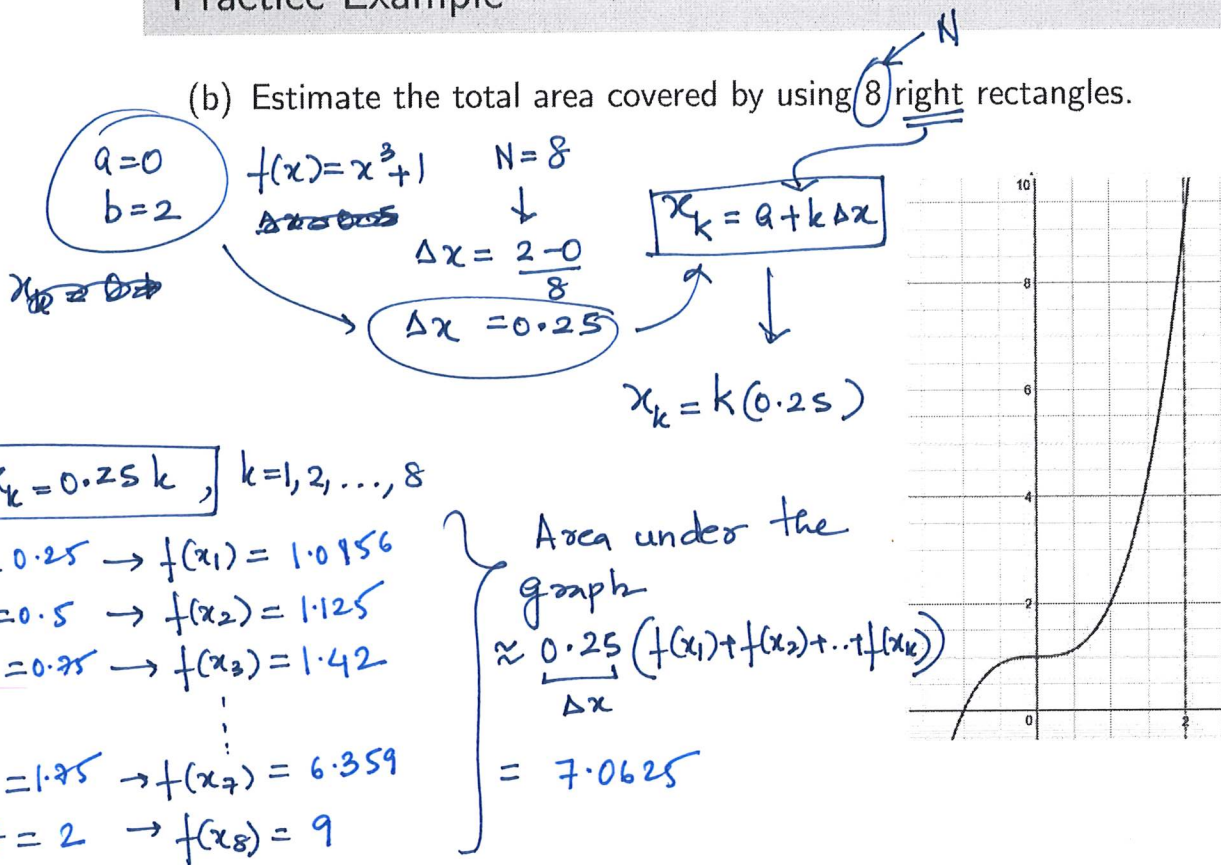 Practice Example
N
(b) Estimate the total area covered by using 8 right rectangles.
a=0
b=2
f(x)=x³+1
N=8
Δx = 2-0
8
Δx =0.25
xₖ = a+kΔx
xₖ = k(0.25)
xₖ = 0.25k, k=1,2,...,8
0.25 → f(x₁) = 1.0156
=0.5 → f(x₂) = 1.125
=0.75 → f(x₃) = 1.42
=1.75 → f(x₇) = 6.359
= 2 → f(x₈) = 9
Area under the
graph
≈ 0.25 (f(x₁)+f(x₂)+..+f(xₖ))
Δx
= 7.0625
10
8
6
4
2
0
2